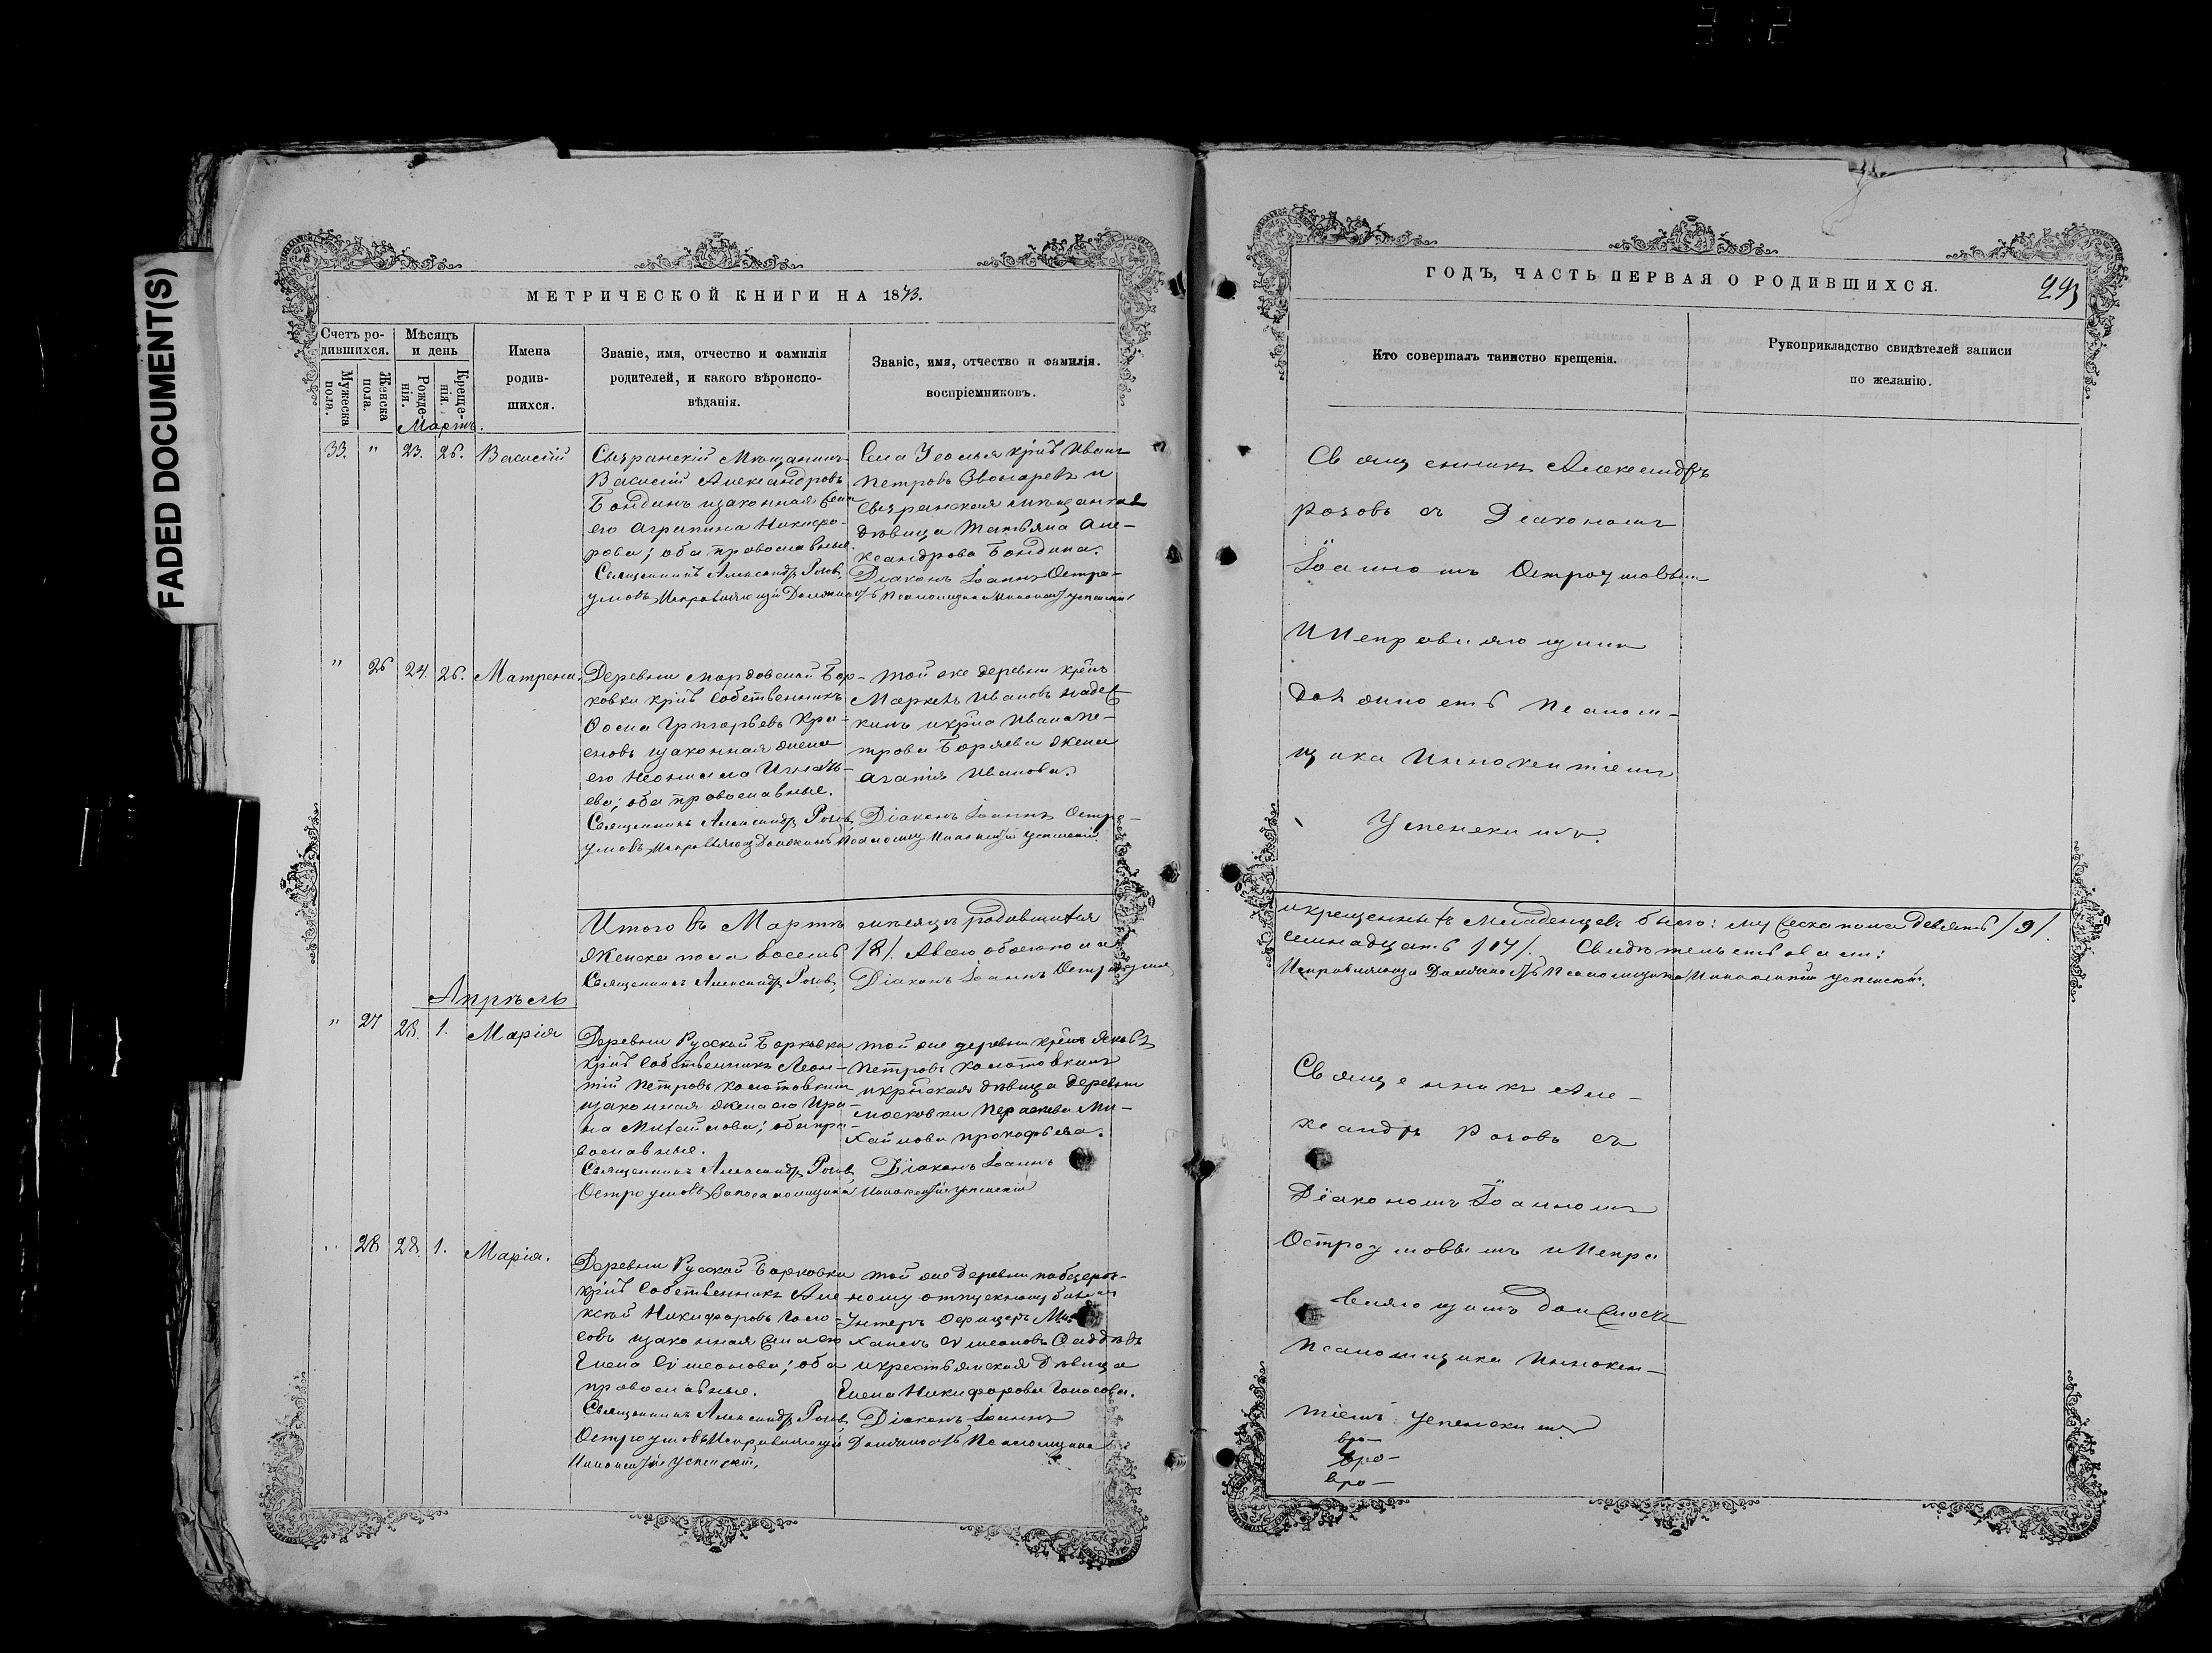 FADED DOCUMENT(S)
МЕТРИЧЕСКОЙ КНИГИ НА 1873.
Счетъ ро-
дившихся.
Мужеска
пола.
Женска
пола.
Мѣсяцъ
и день
Рожде-
нія.
Креще-
нія.
Имена
родив-
шихся.
Званіе, имя, отчество и фамилія
родителей, и какого вѣроиспо-
вѣданія.
Званіе, имя, отчество и фамилія.
воспріемниковъ.
Мартъ.
33. " 23. 26. Василій
Сызранскій Мѣщанинъ
Василій Александровъ
Бондинъ изаконная жена
его Агрипина Никифо-
рова; оба православные.
Священникъ Александръ Розовъ,
Села Усолья кр̃нъ Иванъ
Петровъ Звонаревъ и
Сызранская мѣщанская
дѣвица Татьяна Але-
ксандрова Бондина.
Діаконъ Іоаннъ Остро-
умовъ, Исправляющій Должность Псаломщика Иннокентій Успенскій
" 26 24. 26. Матрена.
Деревни Мордовской Бор-
ковки кр̃нъ Собственникъ
Ѳома Григорьевъ Кра-
сновъ изаконная жена
его Неонила Игнать-
ева; оба православные.
Священникъ Александръ Розовъ,
той же деревни кр̃нъ
Маркелъ Ивановъ
кинъ икр̃на Ивана Пе-
трова Боряева жена
Агапія Иванова.
Діаконъ Іоаннъ Остро-
умовъ, Исправляющ Должность Псаломщ Иннокентій Успенскій
Итого въ Мартѣ мѣсяцѣ родившихся
Женска пола восемь /8/. Авсего обоего пола
Священникъ Александръ Розовъ, Діаконъ Іоаннъ Остроумовъ
Апрѣль
" 27 28. 1. Марія
Деревни Русской Борковки
кр̃нъ Собственникъ Леон-
тій Петровъ Колотовкинъ
изаконная жена его Ири-
на Михайлова; оба пра-
вославные.
Священникъ Александръ Розовъ
той же деревни кр̃нъ Яковъ
Петровъ Колотовкинъ
икр̃нская дѣвица деревни
Московки Параскева Ми-
хайлова Прокофьева.
Діаконъ Іоаннъ
Остроумовъ, Иннокентій Успенскій
" 28 28. 1. Марія.
Деревни Русской Борковки
кр̃нъ Собственникъ Але
ксѣй Никифоровъ Голо-
совъ изаконная жена его
Елена Симеонова; оба
православные.
Священникъ Александръ Розовъ,
той же деревни побезсроч-
ному отпускному билету
Унтеръ Офицеръ Ми
хаилъ Симеоновъ
икрестьянская дѣвица
Елена Никифорова Голосова.
Діаконъ Іоаннъ
Остроумовъ Исправляющій Должность Псаломщика
Иннокентій Успенскій,
ГОДЪ, ЧАСТЬ ПЕРВАЯ О РОДИВШИХСЯ.
293
Кто совершалъ таинство крещенія.
Рукоприкладство свидѣтелей записи
по желанію.
Священникъ Александръ
Розовъ съ Діакономъ
Іоанномъ Остроумовымъ
ИИсправляющимъ
должность Псалом-
щика Иннокентіемъ
Успенскимъ.
икрещенныхъ Младенцевъ было: мужеска пола девять /9/.
Семнадцать /17/. Свидѣтельствовали:
Исправляющій Должность Псаломщика Иннокентій Успенскій.
Священникъ Але-
ксандръ Розовъ съ
Діакономъ Іоанномъ
Остроумовымъ иИспра
вляющимъ должность
Псаломщика Иннокен-
тіемъ Успенскимъ